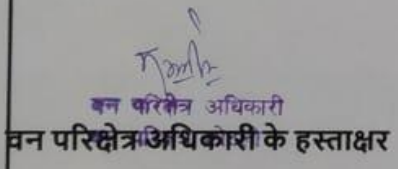 वन परिक्षेत्र अधिकारी
वन परिक्षेत्र अधिकारी के हस्ताक्षर